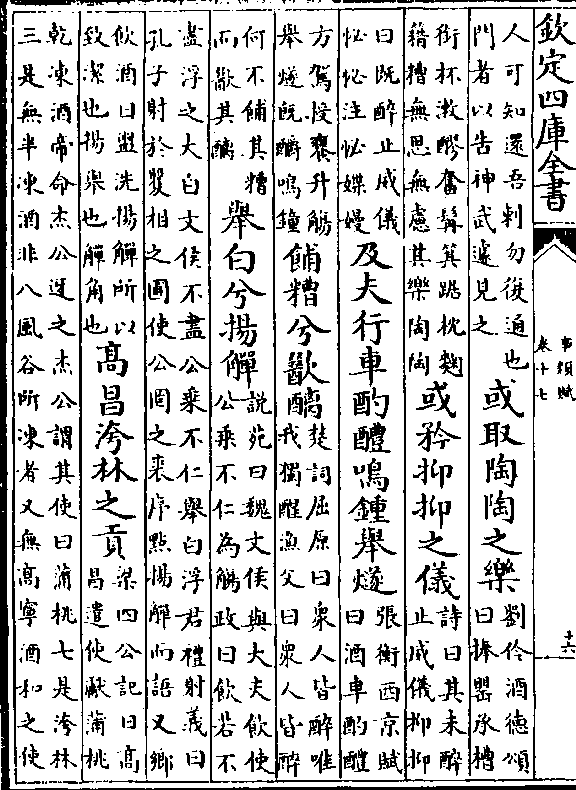 欽定四庫全書
事類賦
卷十七
十六
人可知還吾刺勿復通也
門者以告神武遽見之
或取陶陶之樂
劉伶酒德頌
曰捧罌承槽
銜杯漱醪奮髯箕踞枕麴
藉糟無思無慮其樂陶陶
或矜抑抑之儀
詩曰其未醉
止威儀抑抑
曰既醉止威儀
怭怭注怭媟嫚
及夫行車酌醴鳴鍾舉燧
張衡西京賦
曰酒車酌醴
方駕授饔升觴
舉燧既釂鳴鐘
餔糟兮歠醨
楚詞屈原曰衆人皆醉唯
我獨醒漁父曰衆人皆醉
何不餔其糟
而歠其醨
舉白兮揚觶
說苑曰魏文侯與大夫飲使
公乘不仁為觴政曰飲若不
盡浮之大白文侯不盡公乘不仁舉白浮君禮射義曰
孔子射於矍相之圃使公罔之裘序點揚觶而語又鄉
飲酒曰盥洗揚觶所以
致潔也揚舉也觶角也
高昌洿林之貢
梁四公記曰高
昌遣使獻蒲桃
乾凍酒帝命杰公迓之杰公謂其使曰蒲桃七是洿林
三是無半凍酒非八風谷所凍者又無高寧酒和之使